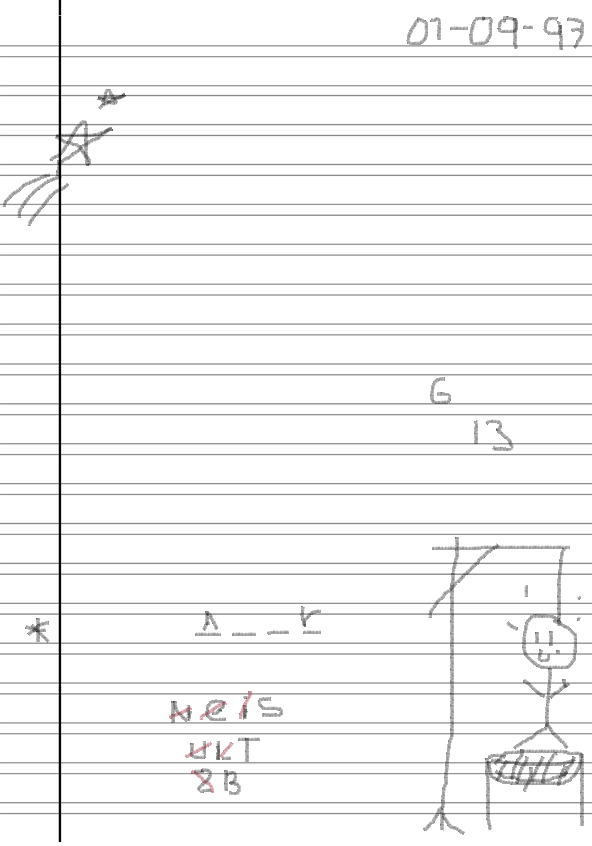 01-09-97
6
13
* Λ _ _ r
N e I S
U L T
8 B